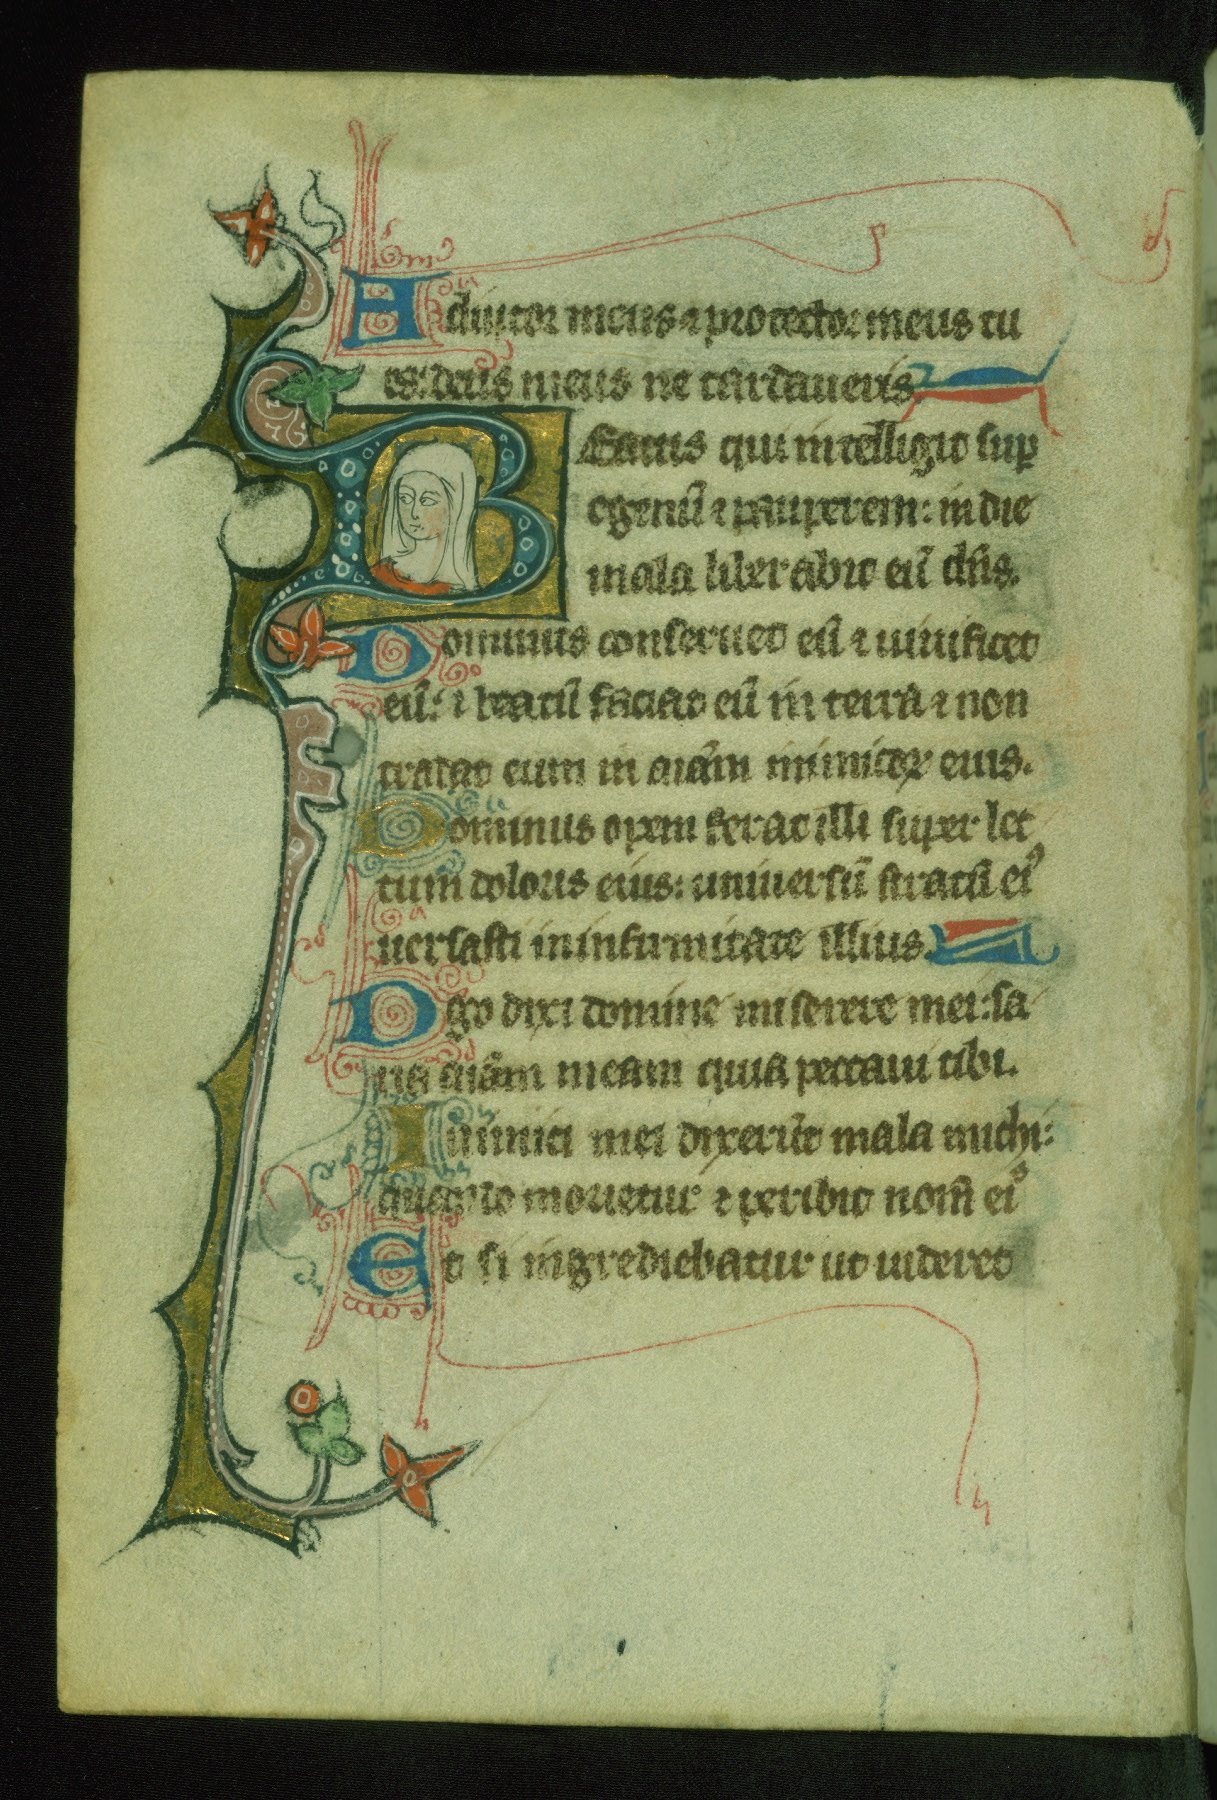 Adiutor meus ⁊ protector meus tu
es: deus meus ne tardaueris.
BEatus qui intelligit sup
egenū ⁊ pauperem: in die
mala liberabit eū dn̄s.
Dominus conseruet eū ⁊ uiuificet
eū: ⁊ beatū faciat eū in terra ⁊ non
tradat eum in aīam inimicoꝝ eius.
Dominus opem ferat illi super lec
tum doloris eius: uniuersū stratū eiꝰ
uersasti in infirmitate illius.
Ego dixi domine miserere mei: sa
na aīam meam quia peccaui tibi.
Inimici mei dixerūt mala michi:
quando morietur ⁊ peribit nom̄ eiꝰ
Et si ingrediebatur ut uideret